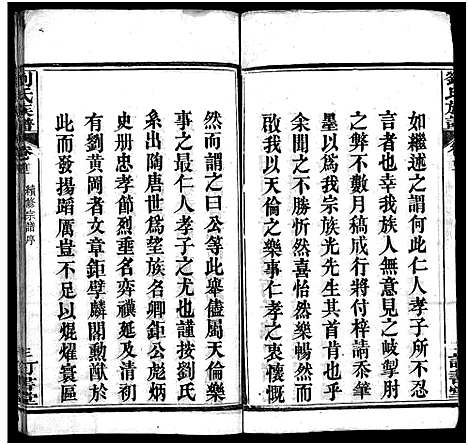 如繼述之謂何此仁人孝子所不忍
言者也幸而族人無意見之岐掣肘
之弊不數月稿成行將付梓請黍筆
墨以為我宗族光先生其首肯也乎
余聞之不勝忻然喜怡然樂暢然而
啟我以天倫之樂事仁孝之衷懷慨
然而謂之曰公等此舉儘屬天倫樂
事之最仁人孝子之尤也接按劉氏
系出陶唐世為望族名卿鉅公彪炳
史册忠孝節烈垂名奕禩延及清初
有劉黃岡者文章鉅擘麟閣勲猷於
此而發揚蹈厲豈不以焜燿寰區
劉氏族譜
卷首
續修宗譜序